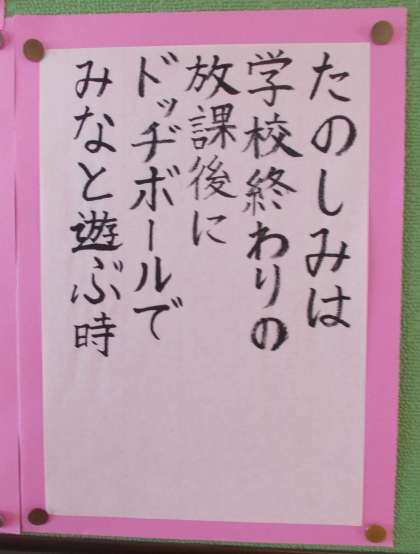 たのしみは
学校終わりの
放課後に
ドッヂボールで
みなと遊ぶ時